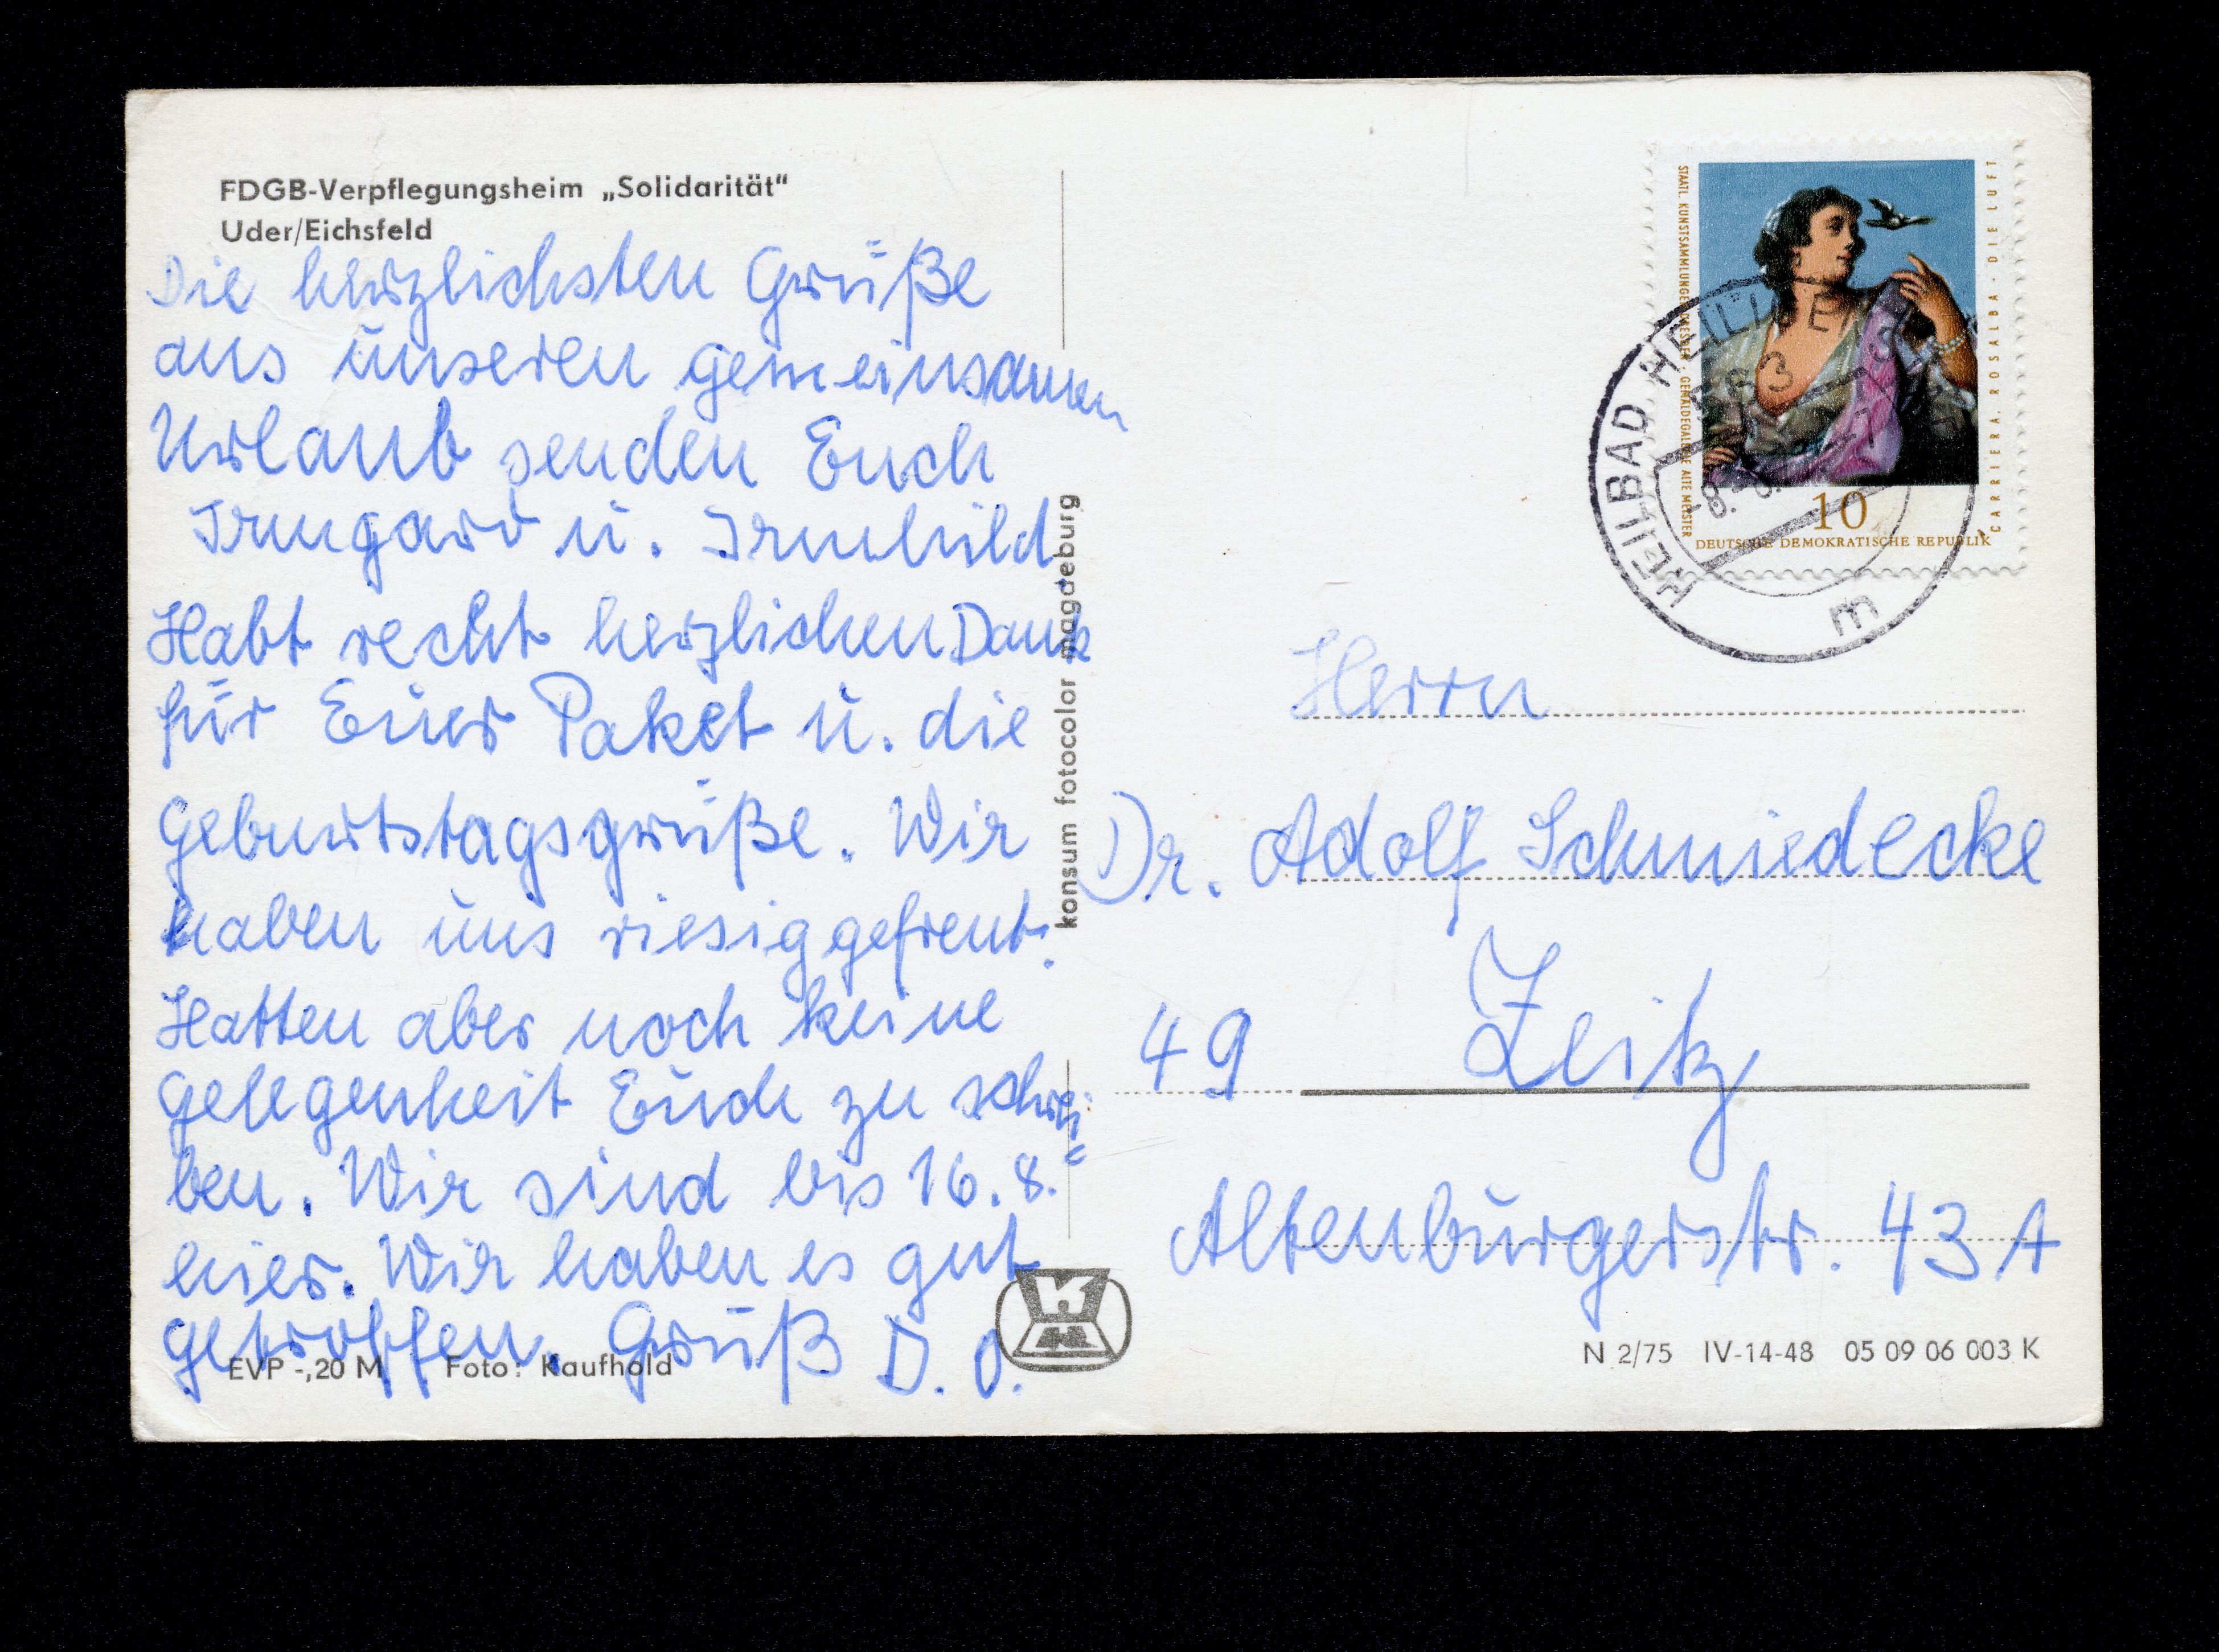 FDGB-Verpflegungsheim „Solidarität"
Uder/Eichsfeld
Die herzlichsten Grüße
aus unseren gemeinsamen
Urlaub senden Euch
Irmgard u. Irmhild
Habt recht herzlichen Dank
für Euer Paket u. die
Geburtstagsgrüße. Wir
haben uns riesig gefreut.
Hatten aber noch keine
Gelegenheit Euch zu schrei=
ben. Wir sind bis 16. 8.
hier. Wir haben es gut
getroffen. Gruß D. O.
EVP -,20 M Foto: Kaufhold
konsum fotocolor magdeburg
STAATL. KUNSTSAMMLUNGEN DRESDEN, GEMÄLDEGALERIE ALTE MEISTER
CARRIERA, ROSALBA · DIE LUFT
10
DEUTSCHE DEMOKRATISCHE REPUBLIK
HEILBAD HEILIGEN
m
Herrn
Dr. Adolf Schmiedecke
49 Zeitz
Altenburgerstr. 43 A
N 2/75 IV-14-48 05 09 06 003 K